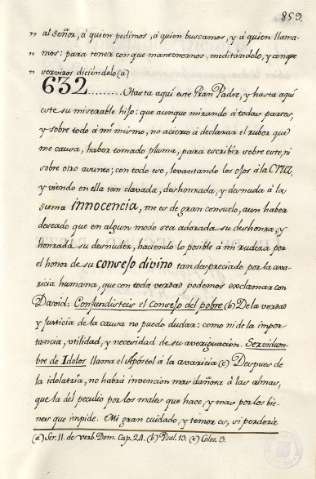 859.
" al Señor, á quien pedimos, á quien buscamos, y á quien llama-
" mos: para tener con que mantenernos, meditandolo, y
" diciendolo (a)
632......... Hasta aqui este Gran Padre, y hasta aqui
este su miserable hijo: que aunque mirando á todas partes,
y sobre todo á mi mismo, no acierto á declarar el rubor que
me causa, haber tomado pluma, para escribir sobre este, ni
sobre otro asunto; con todo eso, levantando los ojos á la CRUZ,
y viendo en ella tan clavada, deshonrada, y desnuda á la
suma innocencia, me es de gran consuelo, aun haber
deseado que en algun modo sea adorada su deshonra, y
honrada su desnudez, haciendo lo posible á mi rudeza por
el honor de su consejo divino tan despreciado por la ava-
ricia humana, que con toda verdad podemos exclamar con
David: Confundisteis el consejo del pobre (b) De la verdad
y justicia de la causa no puedo dudar: como ni de la impor-
tancia, utilidad, y necesidad de su averiguacion. Servidum-
bre de Idolos llama el Apóstol á la avaricia (c) Despues de
la idolatria, no habrá invencion mas dañosa á las almas,
que la del peculio por los males que hace, y mas por los bie-
nes que impide. Mi gran cuidado, y temor es, si perderse
(a) Ser. 11. de verb. Dom. Cap. 24. (b) Psal. 13. (c) Colos. 3.